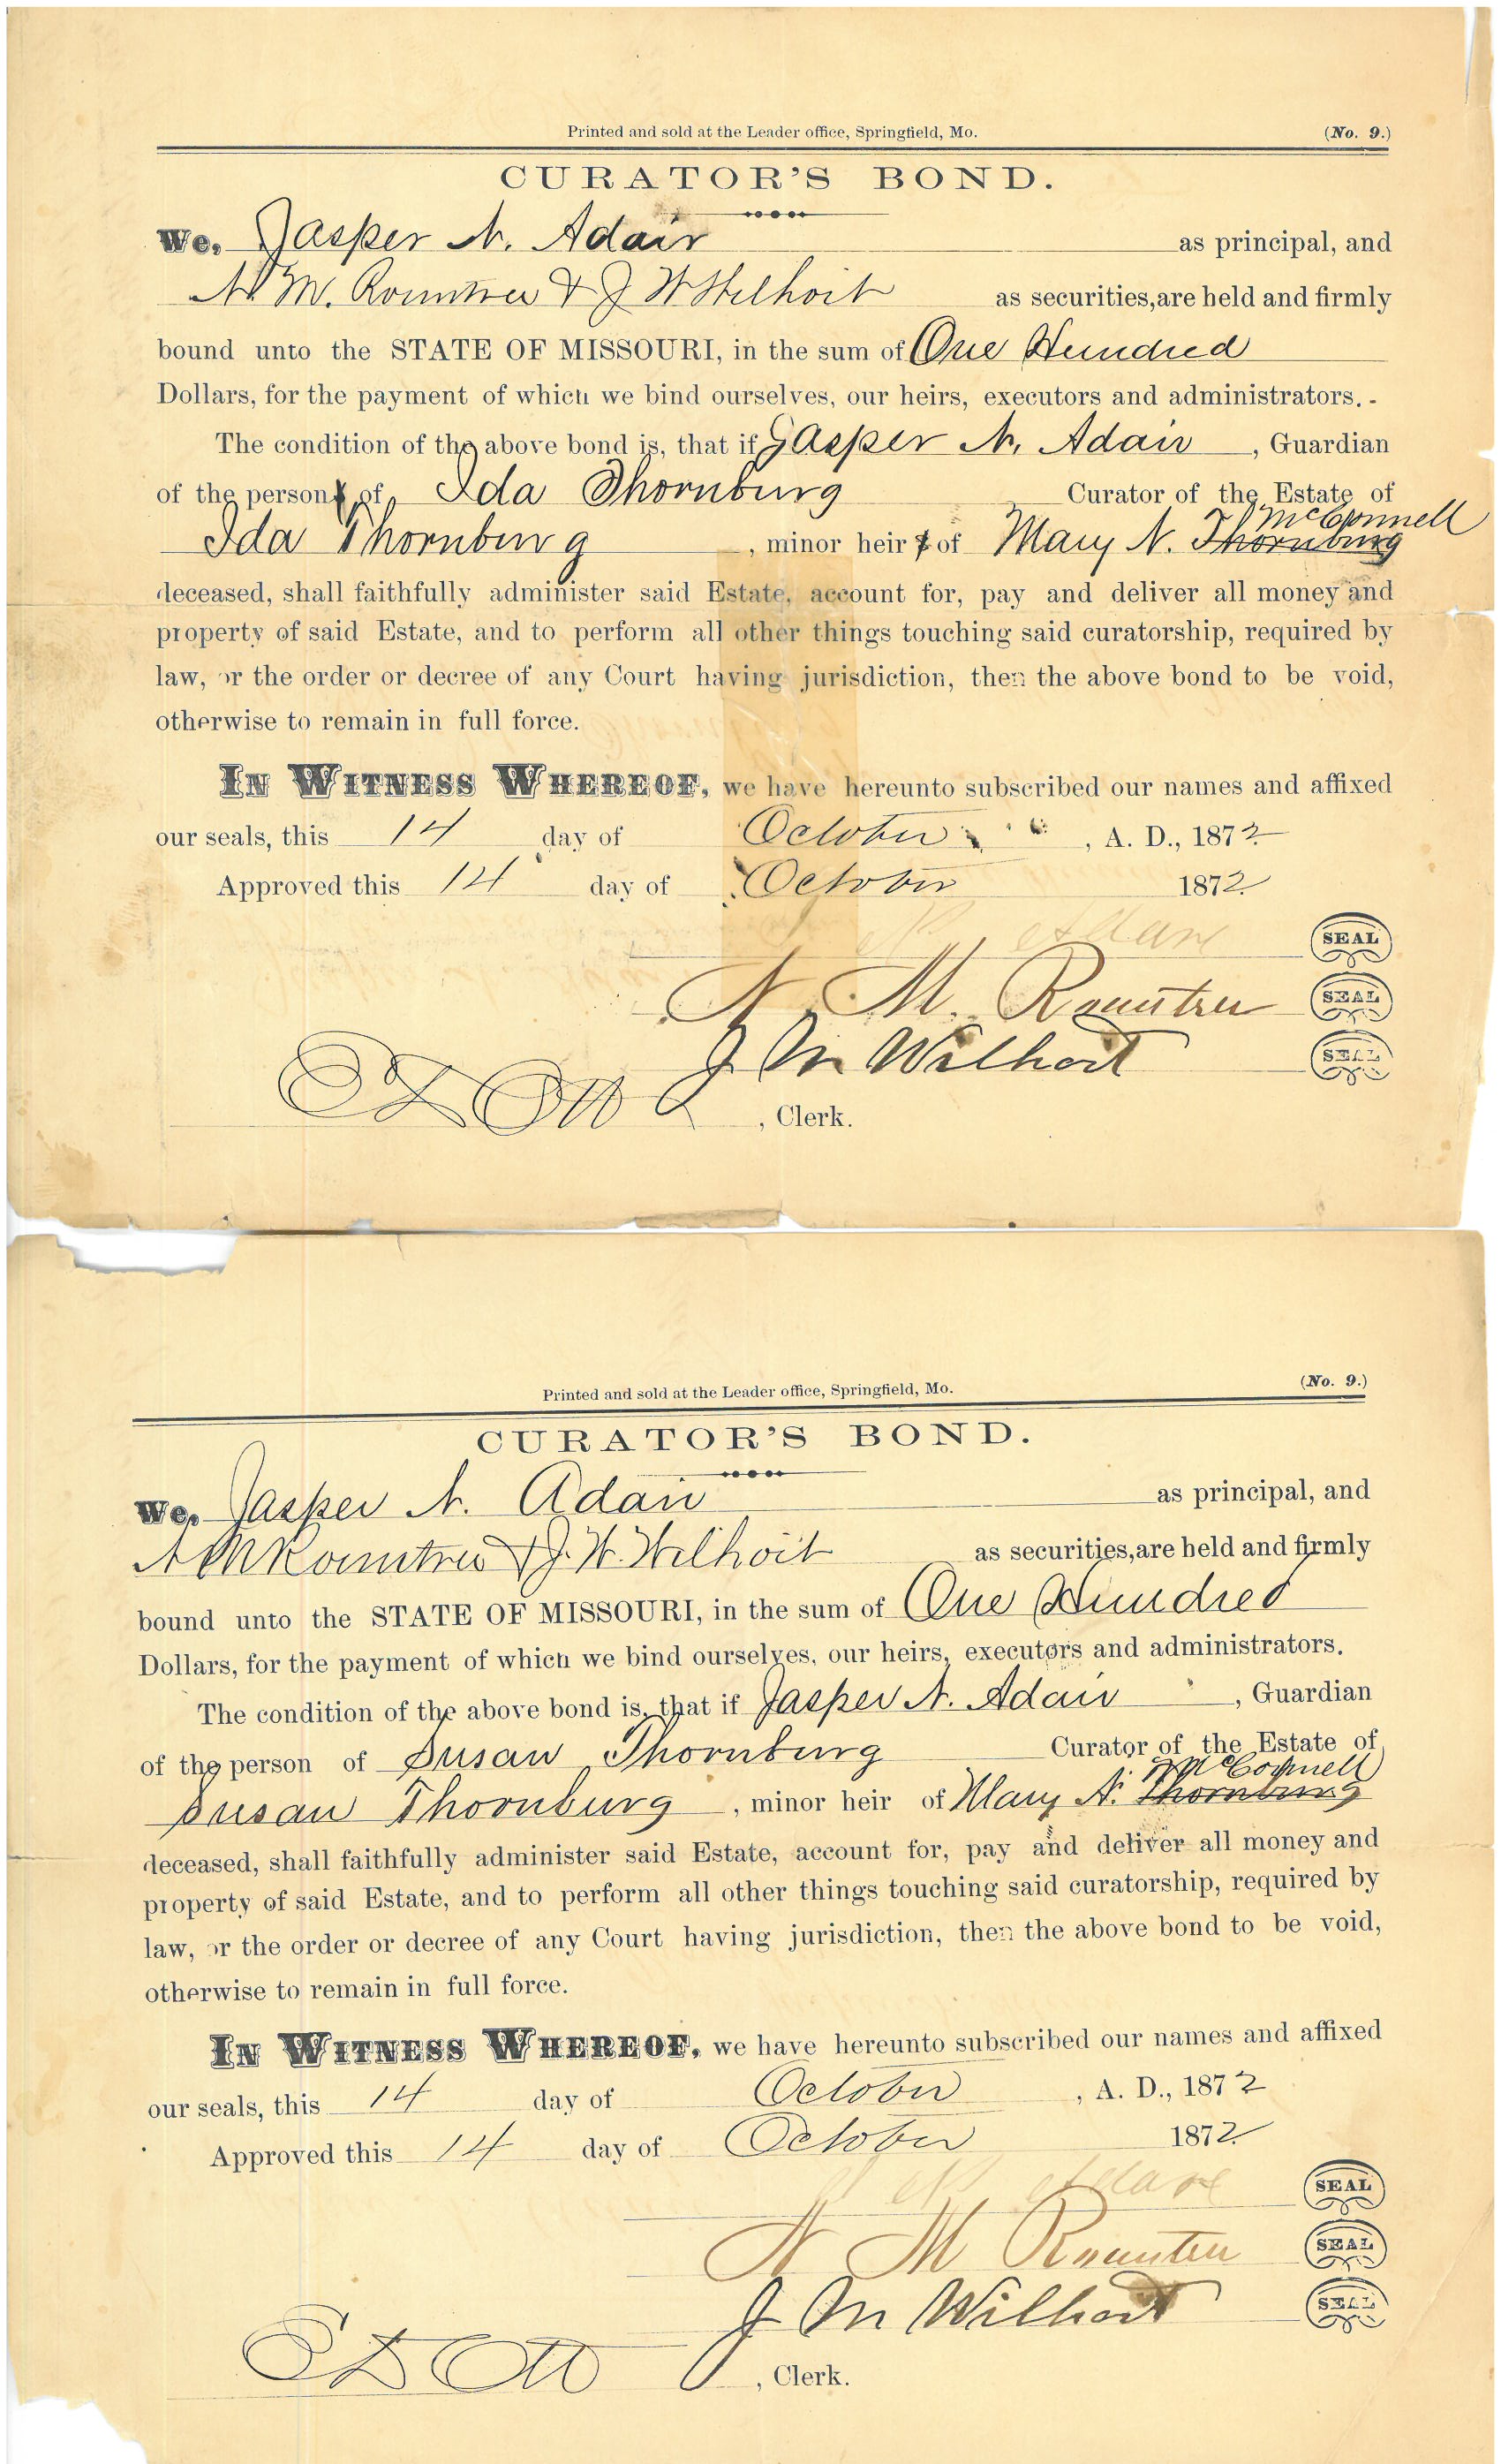 Printed and sold at the Leader office, Springfield, Mo. (No. 9.)
CURATOR'S BOND.
We, Jasper N. Adair as principal, and
N. M. Rountree & J W Wilhoit as securities, are held and firmly
bound unto the STATE OF MISSOURI, in the sum of One Hundred
Dollars, for the payment of which we bind ourselves, our heirs, executors and administrators.
The condition of the above bond is, that if Jasper N. Adair, Guardian
of the person of Ida Thornburg Curator of the Estate of
McConnell
Ida Thornburg, minor heir of Mary N. Thornburg
deceased, shall faithfully administer said Estate, account for, pay and deliver all money and
property of said Estate, and to perform all other things touching said curatorship, required by
law, or the order or decree of any Court having jurisdiction, then the above bond to be void,
otherwise to remain in full force.
IN WITNESS WHEREOF, we have hereunto subscribed our names and affixed
our seals, this 14 day of October, A. D., 1872
Approved this 14 day of October 1872
J N Adair SEAL
N M Rountree SEAL
J M Wilhoit SEAL
, Clerk.
Printed and sold at the Leader office, Springfield, Mo. (No. 9.)
CURATOR'S BOND.
We, Jasper N. Adair as principal, and
N M Rountree & J. W. Wilhoit as securities, are held and firmly
bound unto the STATE OF MISSOURI, in the sum of One Hundred
Dollars, for the payment of which we bind ourselves, our heirs, executors and administrators.
The condition of the above bond is, that if Jasper N. Adair, Guardian
of the person of Susan Thornburg Curator of the Estate of
McConnell
Susan Thornburg, minor heir of Mary N. Thornburg
deceased, shall faithfully administer said Estate, account for, pay and deliver all money and
property of said Estate, and to perform all other things touching said curatorship, required by
law, or the order or decree of any Court having jurisdiction, then the above bond to be void,
otherwise to remain in full force.
IN WITNESS WHEREOF, we have hereunto subscribed our names and affixed
our seals, this 14 day of October, A. D., 1872
Approved this 14 day of October 1872
J N Adair SEAL
N M Rountree SEAL
J M Wilhoit SEAL
, Clerk.